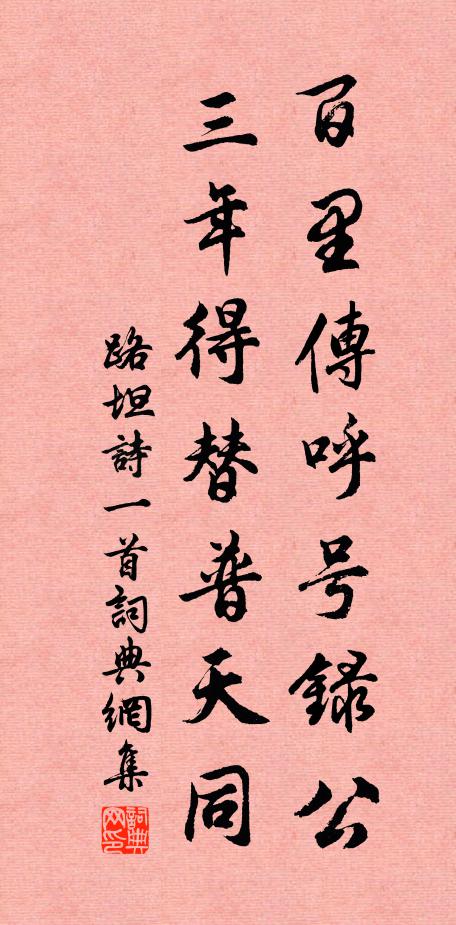 百里傳呼号錄公
三年得替普天同
路坦詩一首詞典網集
詞典网印